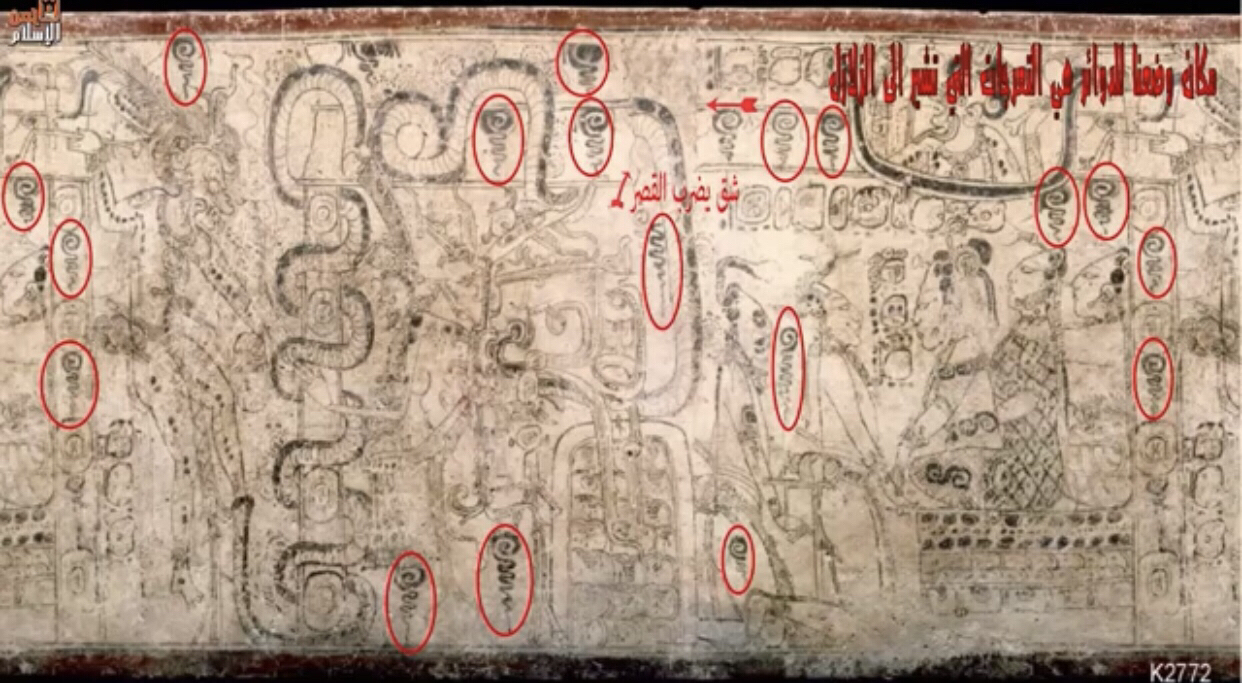 الإسلام
مكان وضعنا للدوائر هي التعرجات التي تشير الى الزلازل
شق يضرب القصر
K2772